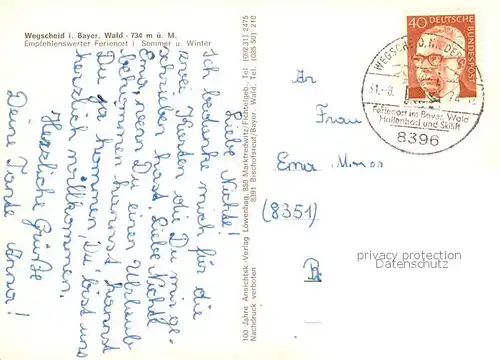 Wegscheid i. Bayer. Wald - 734 m ü. M.
Empfehlenswerter Ferienort i. Sommer u. Winter
Liebe Nichte!
Ich bedanke mich für die
zwei Karten die Du mir ge-
schrieben hast. Liebe Nichte
Erna, wenn Du einen Urlaub
bekommen kannst kannst
Du ja kommen, Du bist uns
herzlich willkommen.
Herzliche Grüße
Deine Tante Anna!
100 Jahre Ansichtsk.-Verlag Löwenhag, 859 Marktredwitz/Fichtelgeb. Tel. (092 31) 2475
Nachdruck verboten 8391 Bayer. Wald, Tel. (085 50) 210
40
DEUTSCHE BUNDESPOST
WEGSCHEID, NIEDERB
Ferienort im Bayer. Wald
Hallenbad und Skilift
8396
An
Frau
Erna
(8351)
privacy protection
Datenschutz